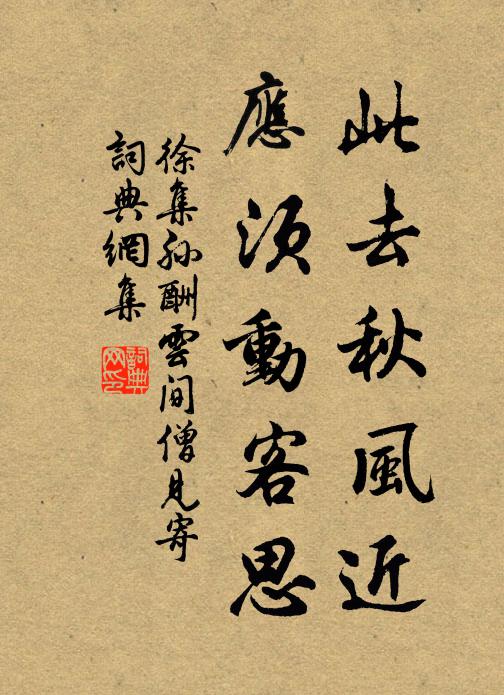 此去秋風近
應須動客思
徐集孫酬雲間僧見寄
詞典網集
詞典網印